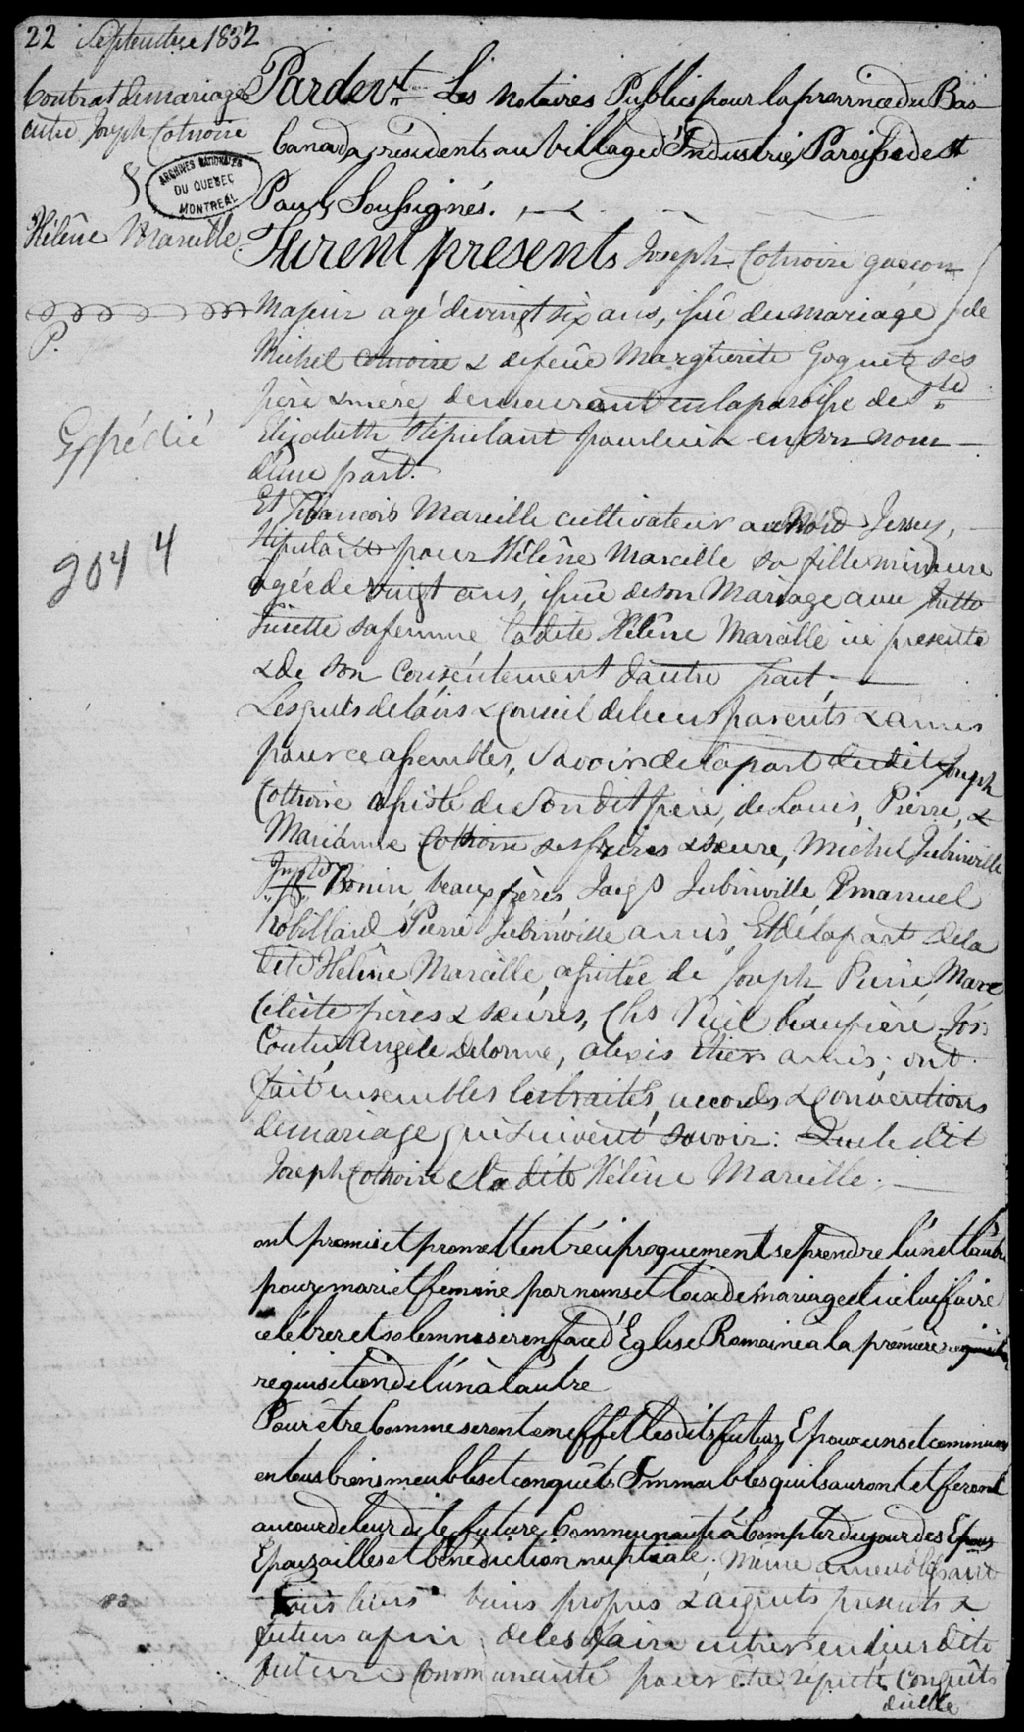 22 Septembre 1832
Contrat de mariage
entre Joseph Cotnoire
&
ARCHIVES NATIONALES
DU QUEBEC
MONTREAL
Hélène Marcille
P.
Expédié
2044
Pardevt Les notaires Publics pour la province du Bas
Canada, résidents au village d'Industrie, Paroisse de St
Paul, Soussignés.
Furent présents Joseph Cotnoire garçon
Majeur agé de vingt six ans, issu du mariage de
Michel Cotnoire & défeûe Marguerite Goguete ses
père & mère, demeurant en la paroisse de Ste
Elizabeth Stipulant pour lui & en son nom
d'une part.
Et François Marcille cultivateur au Nord Jersey,
Stipulant pour Hélène Marcille sa fille mineure
agée de vingt ans, issue de son Mariage avec
Lisette sa femme, ladite Hélène Marcille ici presente
& de son consentement d'autre part;
Lesquels de l'avis & Conseil de leurs parents & amis
pour ce assemblés, Savoir de la part dudit Joseph
Cotnoire assisté de Son dit père, de Louis, Pierre, &
Marianne Cotnoire ses frères & sœure, Michel Jubinville
Bonin, beaux frères, Jacqs Jubinville, Emanuel
Robillard Pierre Jubinville amis, Et de la part de la
dite Hélène Marcille, assistée de Joseph, Pierre, Marc
Céleste frères & sœures, Chs beaufrère, Jos
Coutu, Angèle Delorme, alexis Etier amis; ont
fait ensembles les traités, accords & Conventions
de mariage qui suivent savoir: Que le dit
Joseph Cotnoire & la dite Hélène Marcille.
ont promis et promettent réciproquement se prendre l'un et l'autre
pour mari et femme par noms et loix de mariage et icelui faire
célébrer et solemniser en face d'Eglise Romaine a la première
requisition de l'un à l'autre
Pour être Comme seront en effet les dits futurs Epoux uns et communs
en tous biens meubles et conquêts Immeubles qu'ils auront et feront
au cour de leur dite future Communauté à Compter du jour des
Epouzailles et bénédiction nuptiale; même ameublissant
Tous leurs biens propres & argents presents &
futurs afin de les faire entrer en leur dite
future Communauté pour être réputés Conquêts
d'icelle